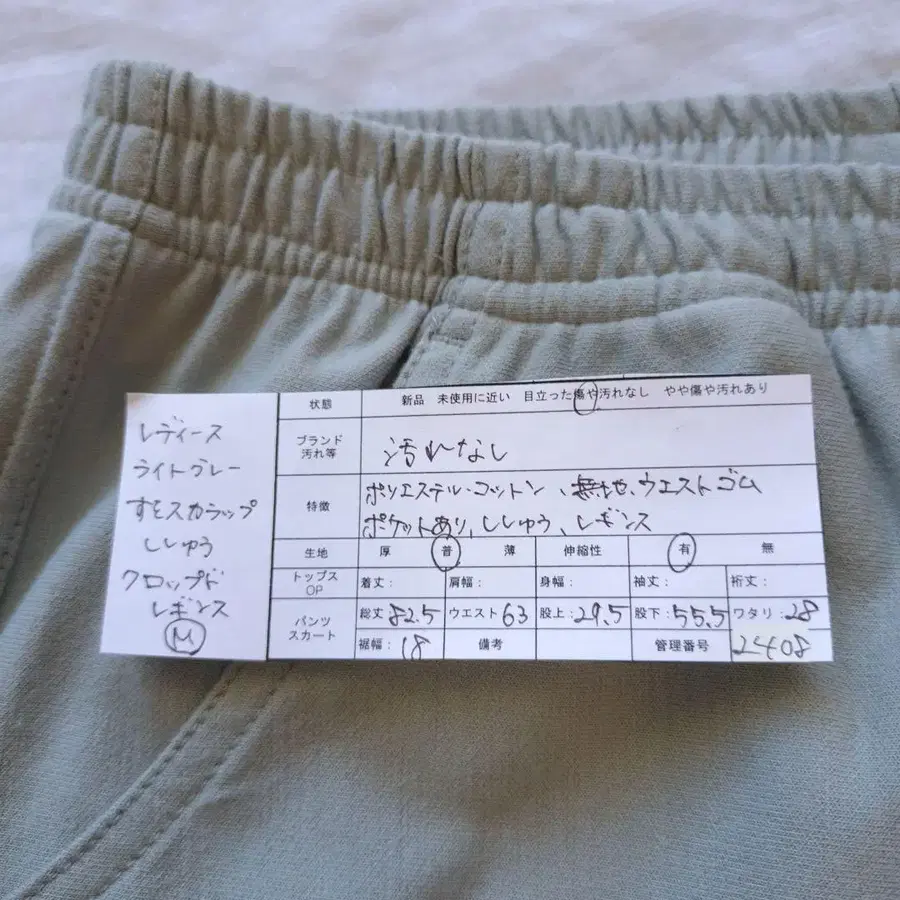 レディース
ライトグレー
すそスカラップ
ししゅう
クロップド
レギンス
M
状態 新品 未使用に近い 目立った傷や汚れなし やや傷や汚れあり
ブランド
汚れ等 汚れなし
特徴 ポリエステル・コットン、無地、ウエストゴム
ポケットあり、ししゅう、レギンス
生地 厚 普 薄 伸縮性 有 無
トップス
OP 着丈: 肩幅: 身幅: 袖丈: 裄丈:
パンツ
スカート 総丈:82.5 ウエスト63 股上:29.5 股下:55.5 ワタリ:28
裾幅:18 備考 管理番号 2408